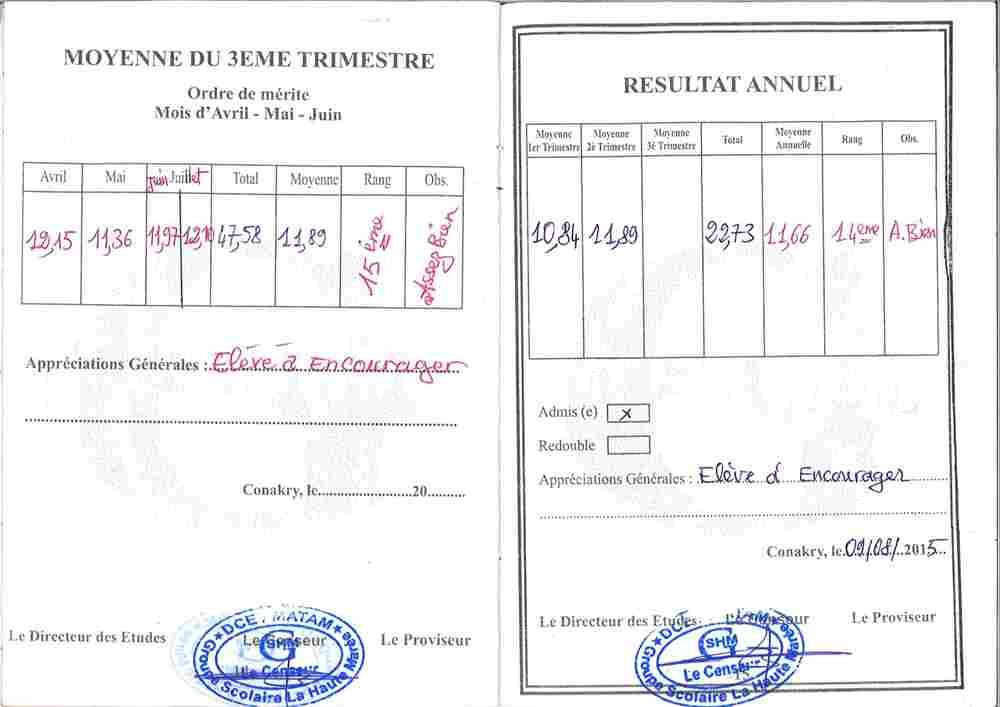 MOYENNE DU 3EME TRIMESTRE
Ordre de mérite
Mois d'Avril - Mai - Juin
Avril Mai juin Juillet Total Moyenne Rang Obs.
12,15 11,36 11,97 12,10 47,58 11,89 15ème Assez Bien
Appréciations Générales : Elève à Encourager
Conakry, le......................20..........
Le Directeur des Etudes Le Censeur Le Proviseur
DCE . MATAM
SHM
Le Censeur
Groupe Scolaire La Haute Marée
RESULTAT ANNUEL
Moyenne 1er Trimestre Moyenne 2è Trimestre Moyenne 3è Trimestre Total Moyenne Annuelle Rang Obs.
10,84 11,89 22,73 11,66 14ème A.Bien
Admis (e) x
Redouble
Appréciations Générales : Elève à Encourager
Conakry, le 09/08/ 2015
Le Directeur des Etudes Le Censeur Le Proviseur
SHM
Le Censeur
Groupe Scolaire La Haute Marée